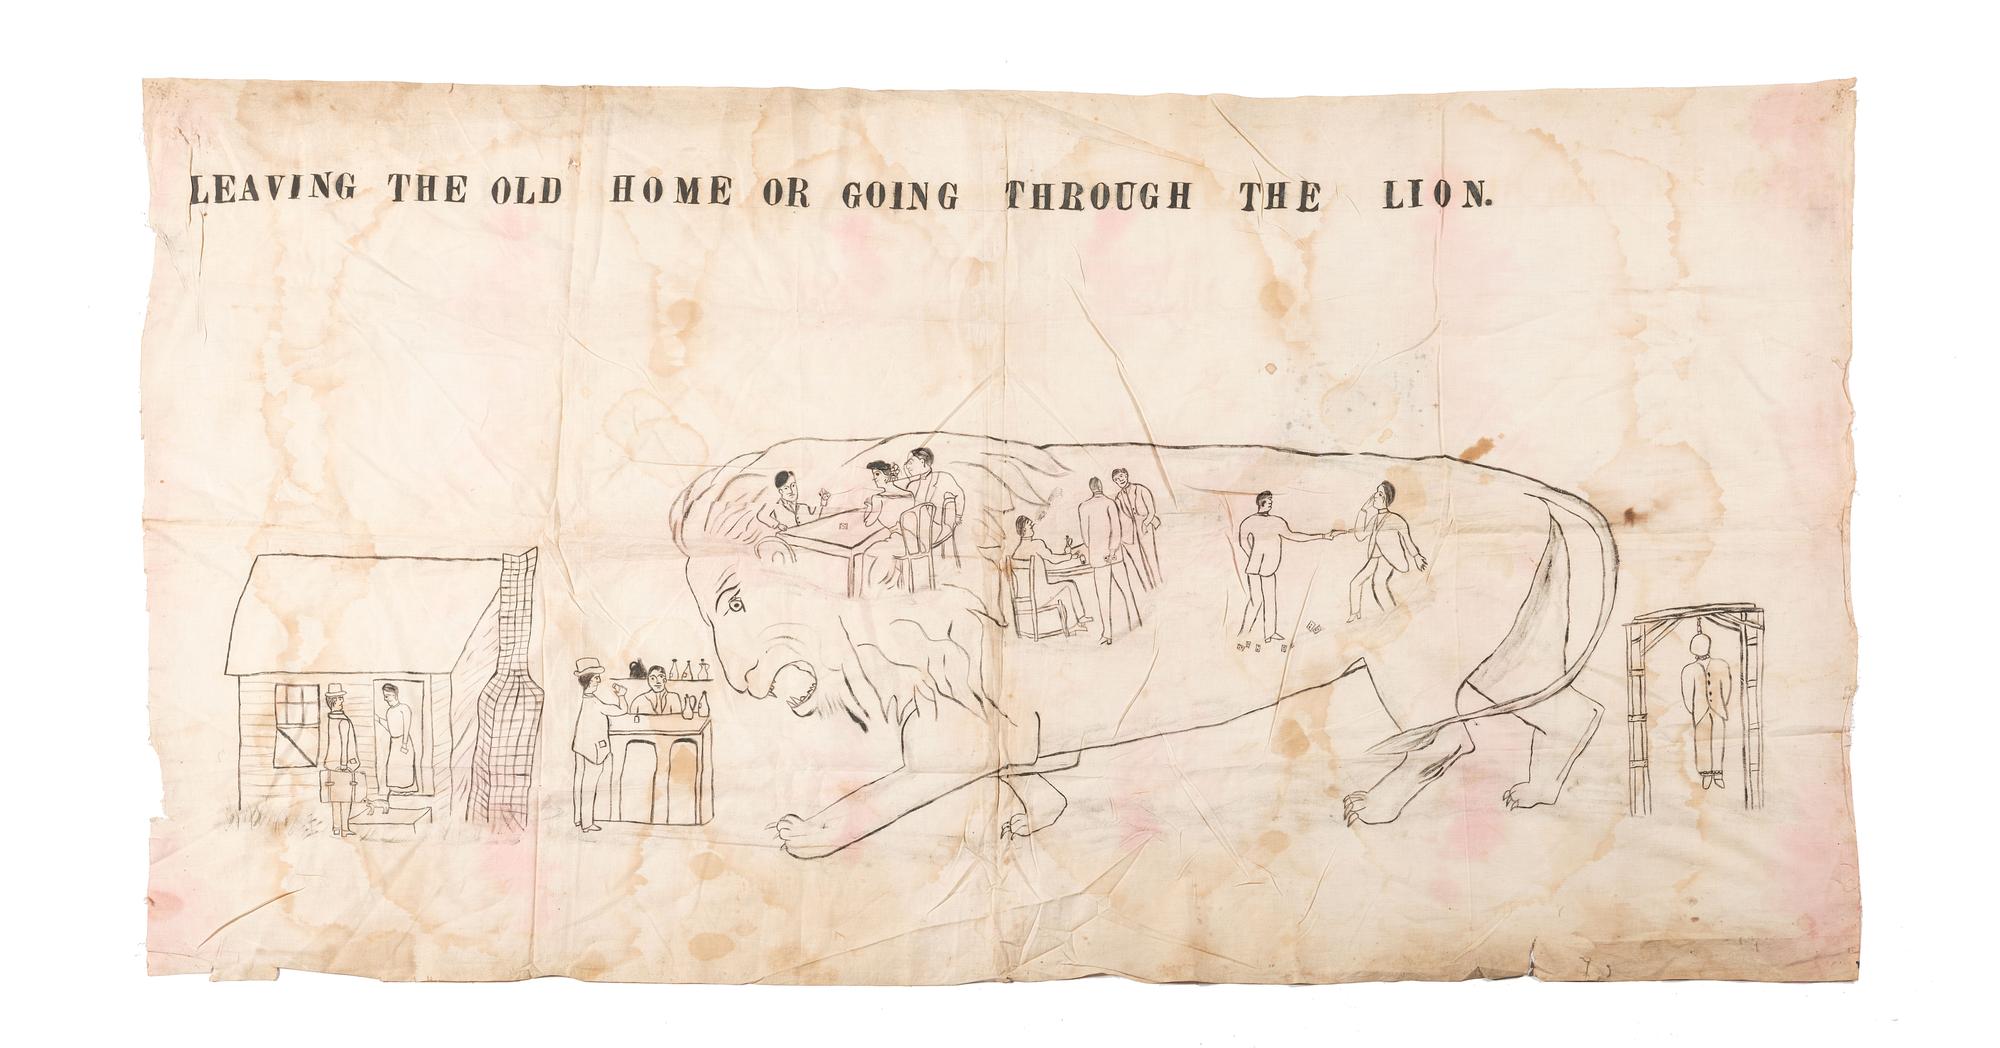 LEAVING THE OLD HOME OR GOING THROUGH THE LION.